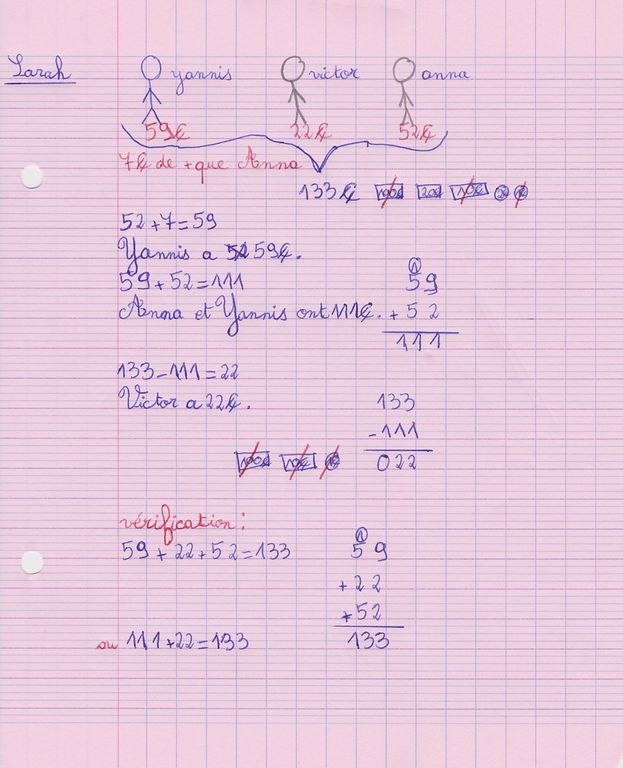 Sarah
yannis victor anna
59€ 22€ 52€
7€ de + que Anna
133€ 100€ 20€ 10€ 2€ 1€
52+7=59
Yannis a 59€.
59+52=111
Anna et Yannis ont 111€.
1
59
+ 52
111
133-111=22
Victor a 22€.
133
-111
022
100€ 10€ 1€
vérification:
59+22+52=133
1
59
+22
+52
133
ou 111+22=133